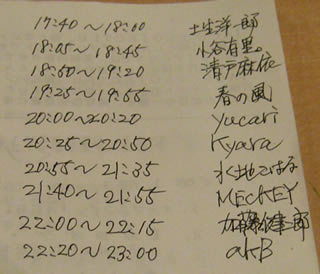 17:40~18:00 土生洋一郎
18:05~18:45 小谷有里。
18:50~19:20 清戸麻依
19:25~19:55 春の風
20:00~20:20 yucari
20:25~20:50 Kyara
20:55~21:35 水地こはる
21:40~21:55 MECKEY
22:00~22:15 加藤健一郎
22:20~23:00 akB